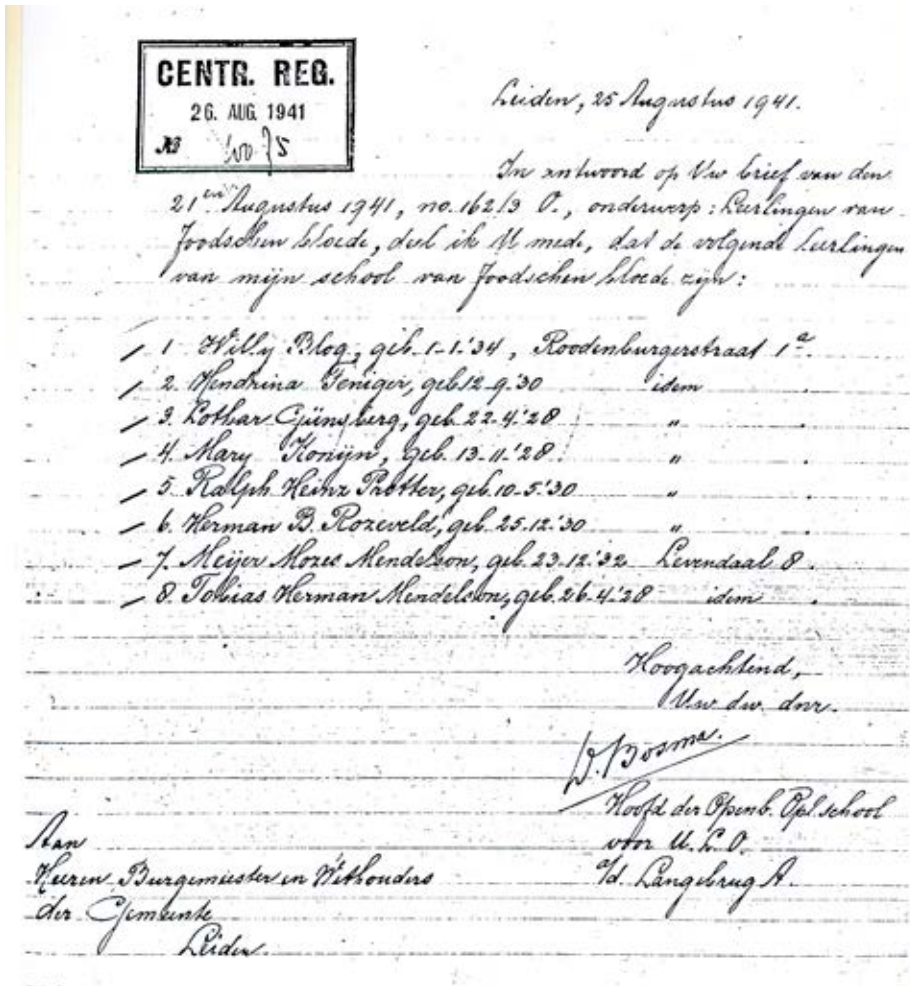 CENTR. REG.
26. AUG. 1941
No
Leiden, 25 Augustus 1941.
In antwoord op Uw brief van den
21en Augustus 1941, no. 162/3 O., onderwerp: Leerlingen van
Joodschen bloede, deel ik U mede, dat de volgende leerlingen
van mijn school van Joodschen bloede zijn:
1 Willy Blog, geb. 1-1-'34, Roodenburgerstraat 1a.
2. Hendrina geb. 12-9-'30 idem .
3. Lothar Günsberg, geb. 22-4-'28 " .
4. Mary Konijn, geb. 13-11-'28. " .
5. Ralph Heinz Protter, geb. 10-5-'30 " .
6. Herman B. Rozeveld, geb. 25-12-'30 " .
7. Meijer Mozes Mendelson, geb. 23-12-'32 Levendaal 8.
8. Tobias Herman Mendelson, geb. 26-4-'28 idem .
Hoogachtend,
Uw dw. dnr.
D. Bosma.
Hoofd der Openb. Opl. school
voor U. L. O.
a/d Langebrug A.
Aan
Heeren Burgemeester en Wethouders
der Gemeente
Leiden.